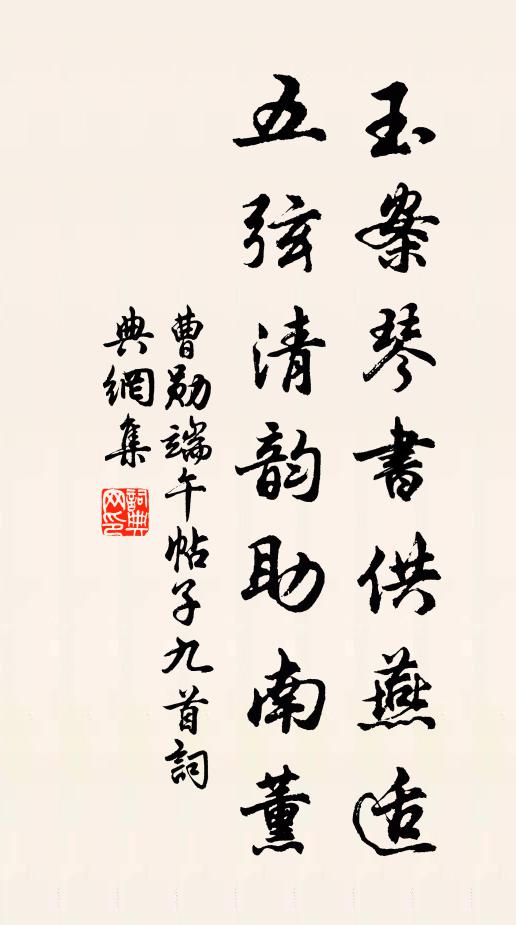 玉案琴書供燕适
五弦清韵助南薰
曹勛端午帖子九首詞
典網集
詞典網印